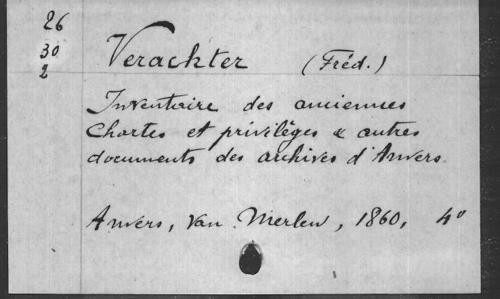 26
30
2
Verachter (Fréd.)
Inventaire des anciennes
Chartes et privilèges & autres
documents des archives d'Anvers.
Anvers, Van Merlen, 1860, 4°